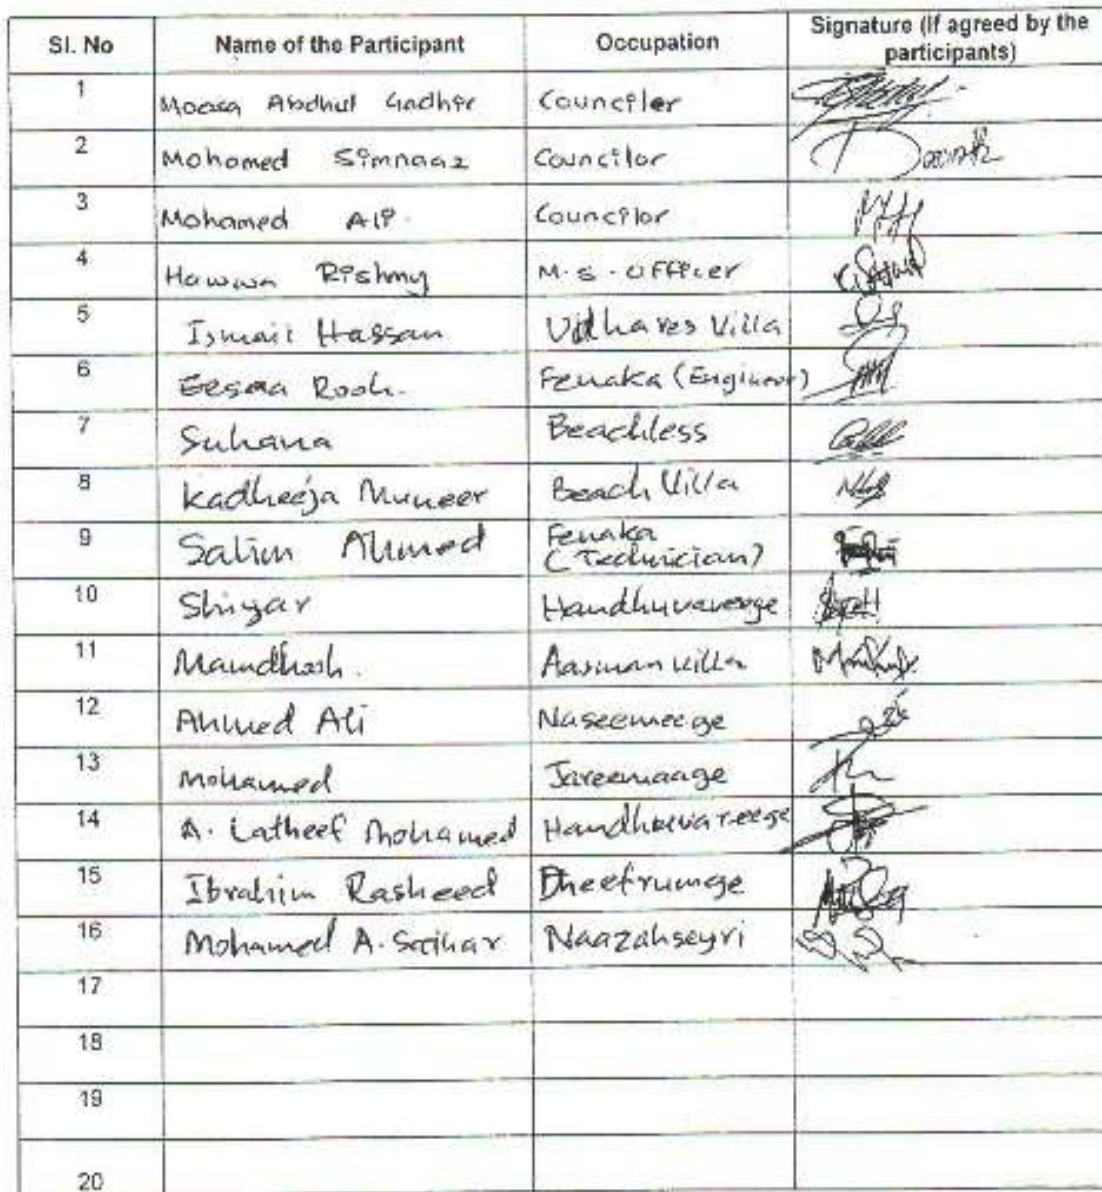 Sl. No Name of the Participant Occupation Signature (If agreed by the participants)
1 Moosa Abdhul Gadhir Counciler
2 Mohamed Simnaaz Councilor
3 Mohamed Ali. Councilor
4 Hawwa Rishmy M.S. Officer
5 Ismail Hassan Villa
6 Eesaa Rooh. Fenaka (Engineer)
7 Suhana Beachless
8 Kadheeja Muneer Beach Villa
9 Salim Ahmed Fenaka
(Technician)
10 Shiyar
11 Mamdhooh. Aasman villa
12 Ahmed Ali Naseemeege
13 Mohamed Jareemaage
14 A. Latheef Mohamed Handhuvareege
15 Ibrahim Rasheed Dheefrumge
16 Mohamed A. Naazahseyri
17
18
19
20